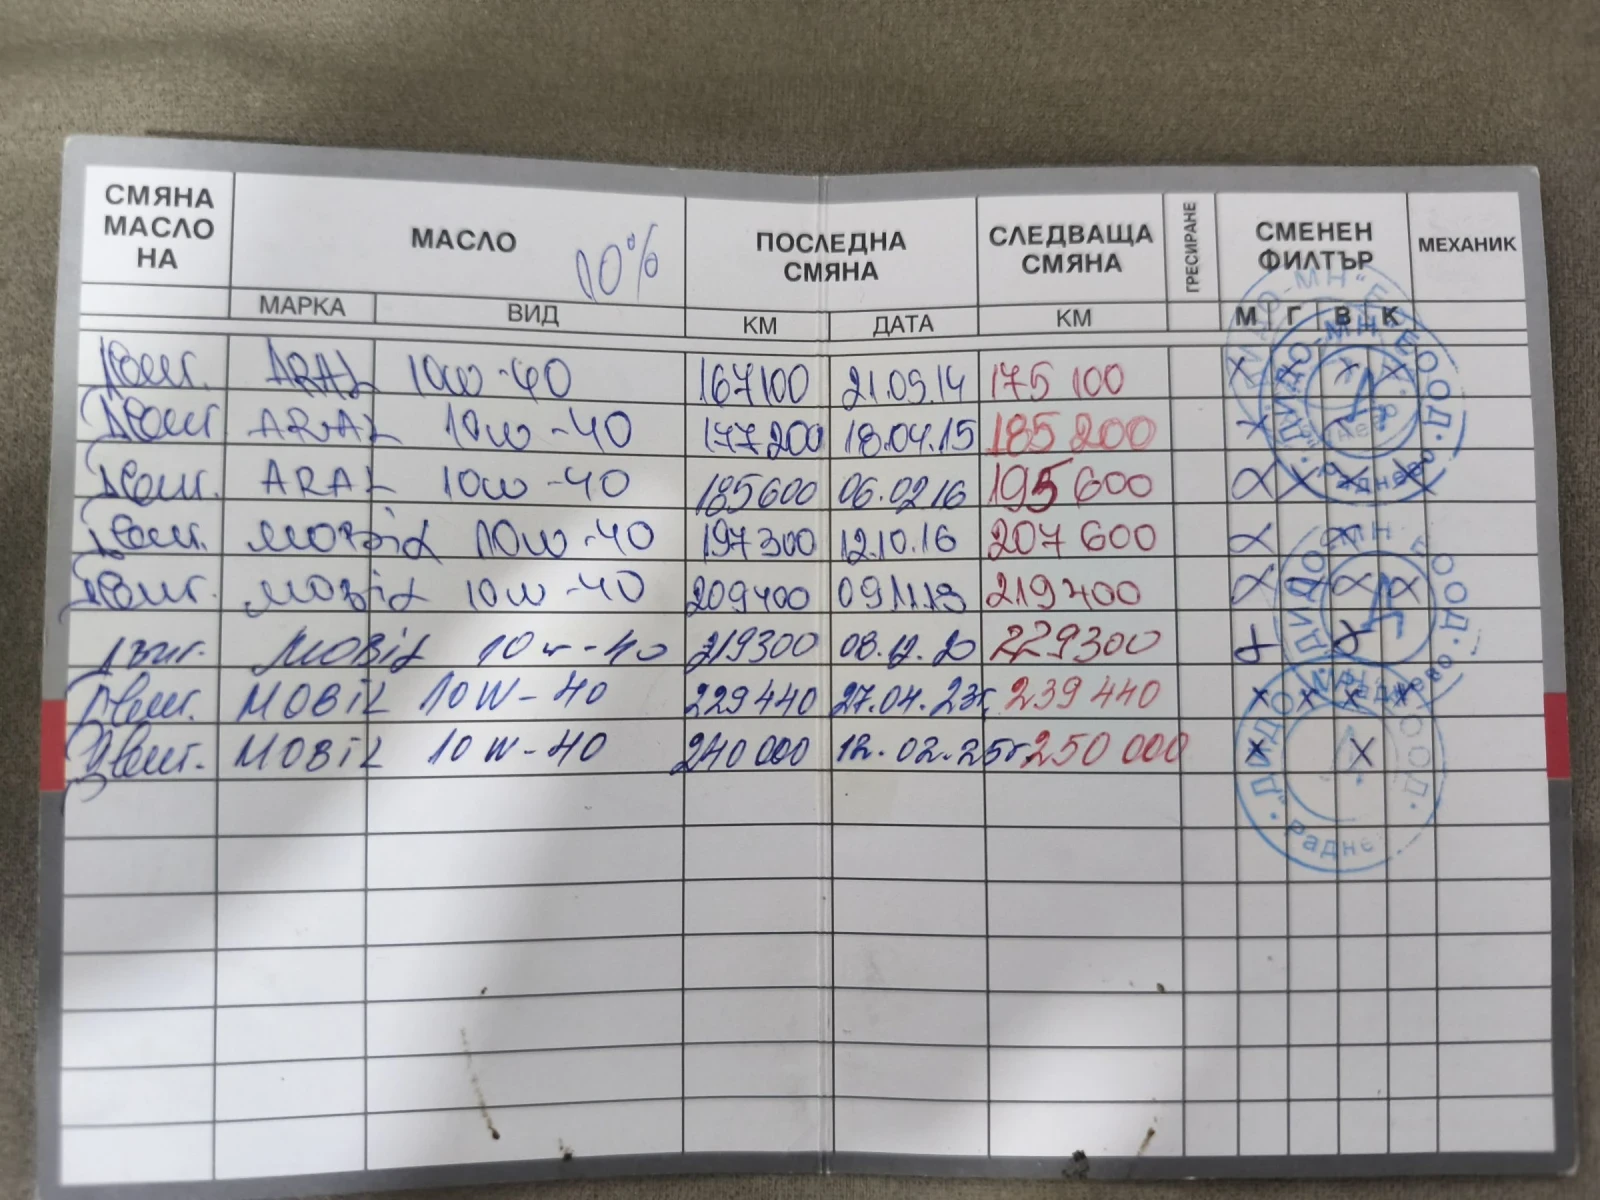 СМЯНА МАСЛО НА МАСЛО 10% ПОСЛЕДНА СМЯНА СЛЕДВАЩА СМЯНА ГРЕСИРАНЕ СМЕНЕН ФИЛТЪР МЕХАНИК
МАРКА ВИД КМ ДАТА КМ М Г В К
Двиг. ARAL 10w-40 167100 21.09.14 175 100 x x x x
Двиг ARAL 10w-40 177200 18.04.15 185 200 x x
Двиг. ARAL 10w-40 185600 06.02.16 195 600 x x x x
Двиг. MOBIL 10w-40 197300 12.10.16 207 600 x x
Двиг. MOBIL 10w-40 209400 219400 x x x x
Двиг. MOBIL 10w-40 219300 08.12.20 229300 x x
Двиг. MOBIL 10W-40 229440 27.04.23г 239 440 x x x x
Двиг. MOBIL 10W-40 240 000 12.02.25г. 250 000 x x
"ДИДО-МН" ЕООД · Раднево ·
"ДИДО-МН" ЕООД · Раднево
"ДИДО-МН" ЕООД · Радне